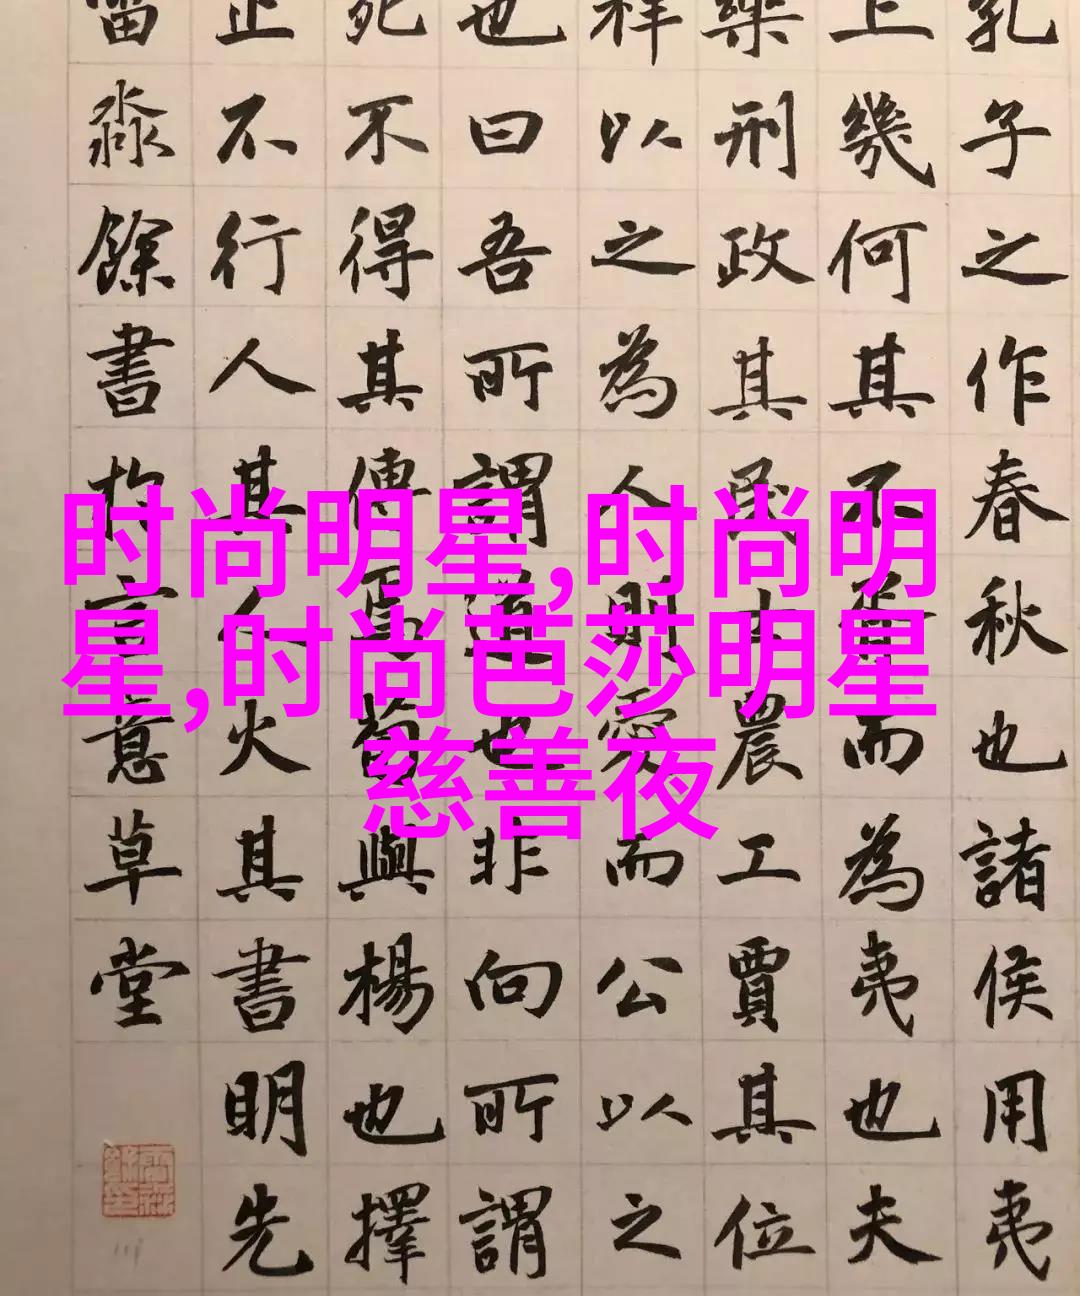 孔子之作春秋也諸侯用夷
上幾何其不胥而為夷也夫
樂刑政其民士農工賈其位
祥以之為人則愛而公以之
也曰吾所謂道也非向所謂
死不得其傳焉荀與楊也擇
止不行人其人火其書明先
淼餘書於言意草堂
时尚明星,时尚明
星,时尚芭莎明星
慈善夜